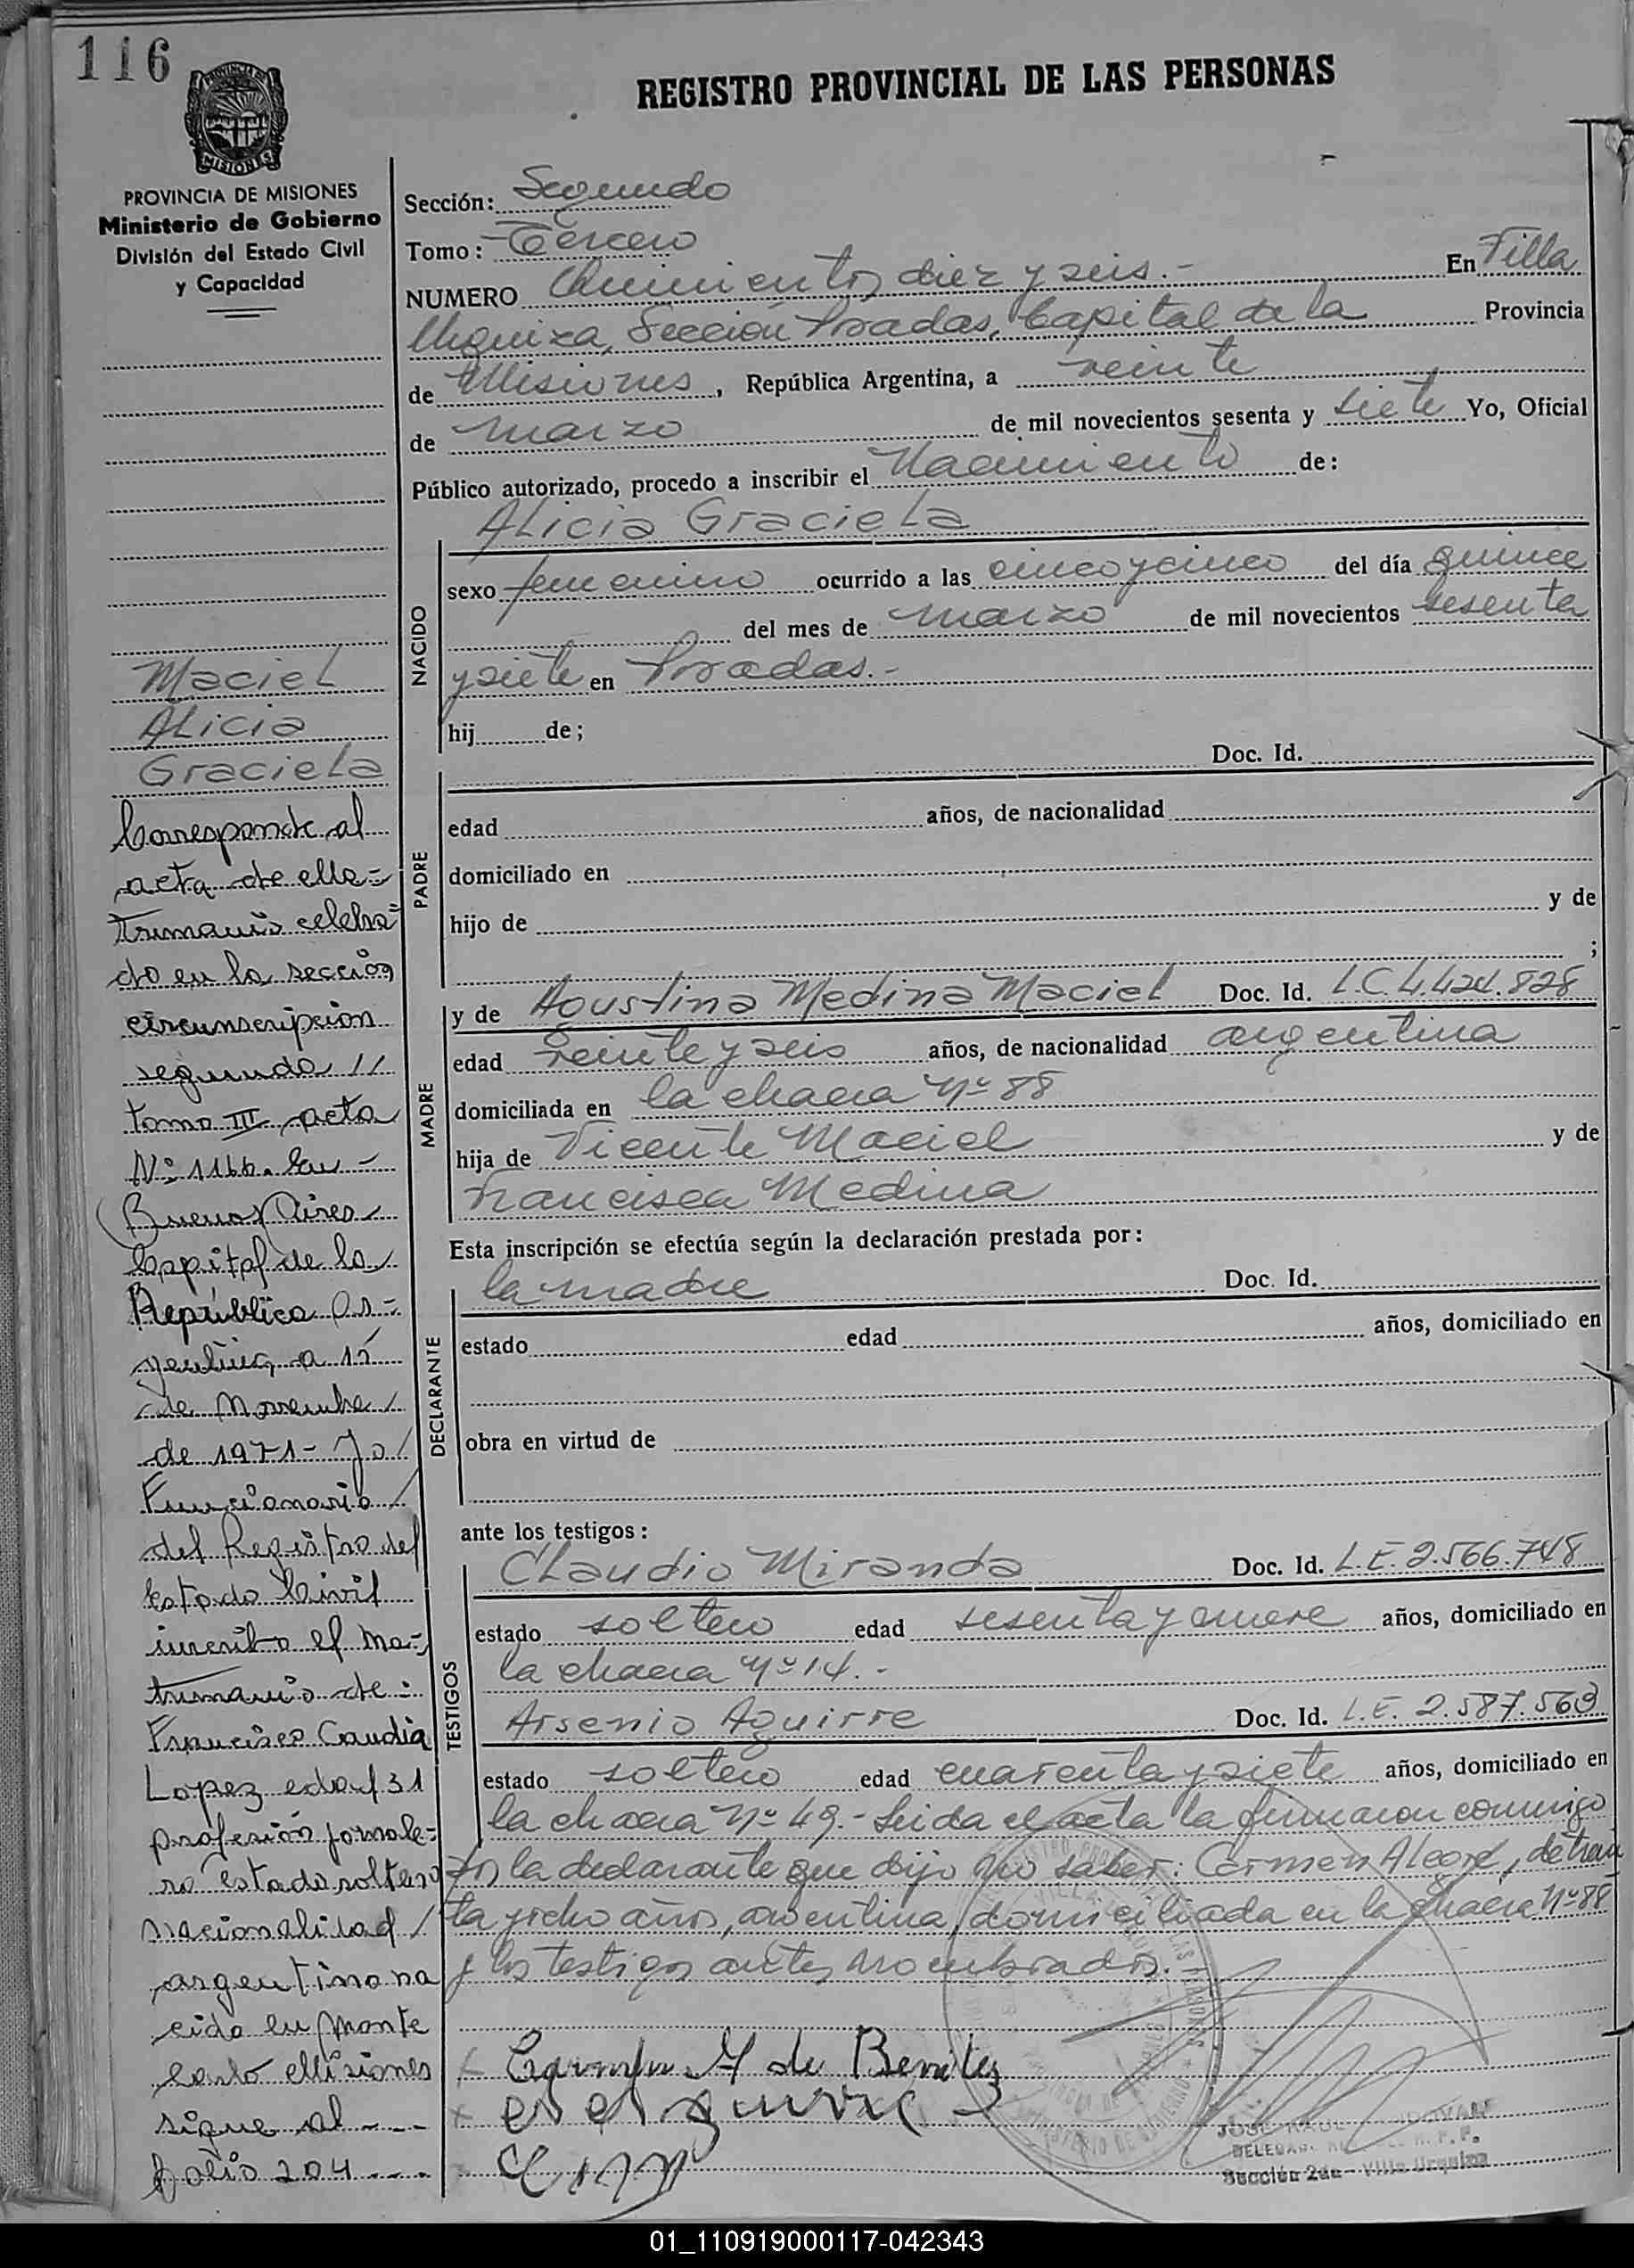 116
REGISTRO PROVINCIAL DE LAS PERSONAS
PROVINCIA DE MISIONES
Ministerio de Gobierno
División del Estado Civil
y Capacidad
Sección: Segundo
Tomo: Tercero
NUMERO Quinientos diez y seis.- En Villa
Urquiza, Sección Posadas, Capital de la Provincia
de Misiones, República Argentina, a veinte
de marzo de mil novecientos sesenta y siete Yo, Oficial
Público autorizado, procedo a inscribir el Nacimiento de:
NACIDO
Alicia Graciela
sexo femenino ocurrido a las cinco y cinco del día quince
del mes de marzo de mil novecientos sesenta
y siete en Posadas.-
hij de;
PADRE
Doc. Id.
edad años, de nacionalidad
domiciliado en
hijo de y de
;
MADRE
y de Agustina Medina Maciel Doc. Id. L.C. 4.424.828
edad Veinte y seis años, de nacionalidad argentina
domiciliada en la chacra Nº 88
hija de Vicente Maciel y de
Francisca Medina
Esta inscripción se efectúa según la declaración prestada por:
DECLARANTE
la madre Doc. Id.
estado edad años, domiciliado en
obra en virtud de
ante los testigos:
TESTIGOS
Claudio Miranda Doc. Id. L.E. 2.566.748
estado soltero edad sesenta y nueve años, domiciliado en
la chacra Nº 14.-
Arsenio Aguirre Doc. Id. L.E. 2.587.563
estado soltero edad cuarenta y siete años, domiciliado en
la chacra Nº 49.- Leida el acta la firmaron conmigo
la declarante que dijo no saber: Carmen Alegre, de trein
ta y ocho años, argentina, domiciliada en la chacra Nº 88
y los testigos antes nombrados.-
Maciel
Alicia
Graciela
Corresponde al
acta de Ma=
trimonio celebra=
do en la sección
circunscripcion
segunda //
tomo III acta
Nº 1166. En -
Buenos Aires
Capital de la
República Ar=
gentina, a 15
de Noviembre /
de 1971 - Yo /
Funcionario /
del Registro del
Estado Civil
inscribo el Ma-
trimonio de:
Francisco Caudia
Lopez edad 31
profesión jornale=
ro estado soltero
nacionalidad /
argentino na
cido en Monte
carlo Misiones
sigue al ---
folio 204 ---
Carmen A de Benitez
DELEGADO
Sección 2da - Villa Urquiza
01_110919000117-042343